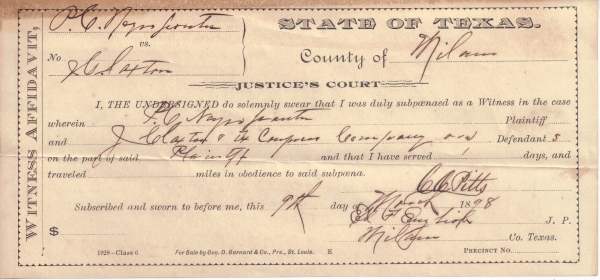 WITNESS AFFIDAVIT,
P. C.
vs.
No
J Claxton
STATE OF TEXAS.
County of Milam
JUSTICE'S COURT
I, THE UNDERSIGNED do solemnly swear that I was duly subpœnaed as a Witness in the case
wherein P. C. Plaintiff
and J Claxton & Company Defendants
on the part of said Plaintiff and that I have served 1 days, and
traveled miles in obedience to said subpœna.
C C Pitts
Subscribed and sworn to before me, this 9th day of March 1898
J. P.
$ Milam Co. Texas.
1928–Class 6 For Sale by Geo. D. Barnard & Co., Prs., St. Louis. E PRECINCT NO.